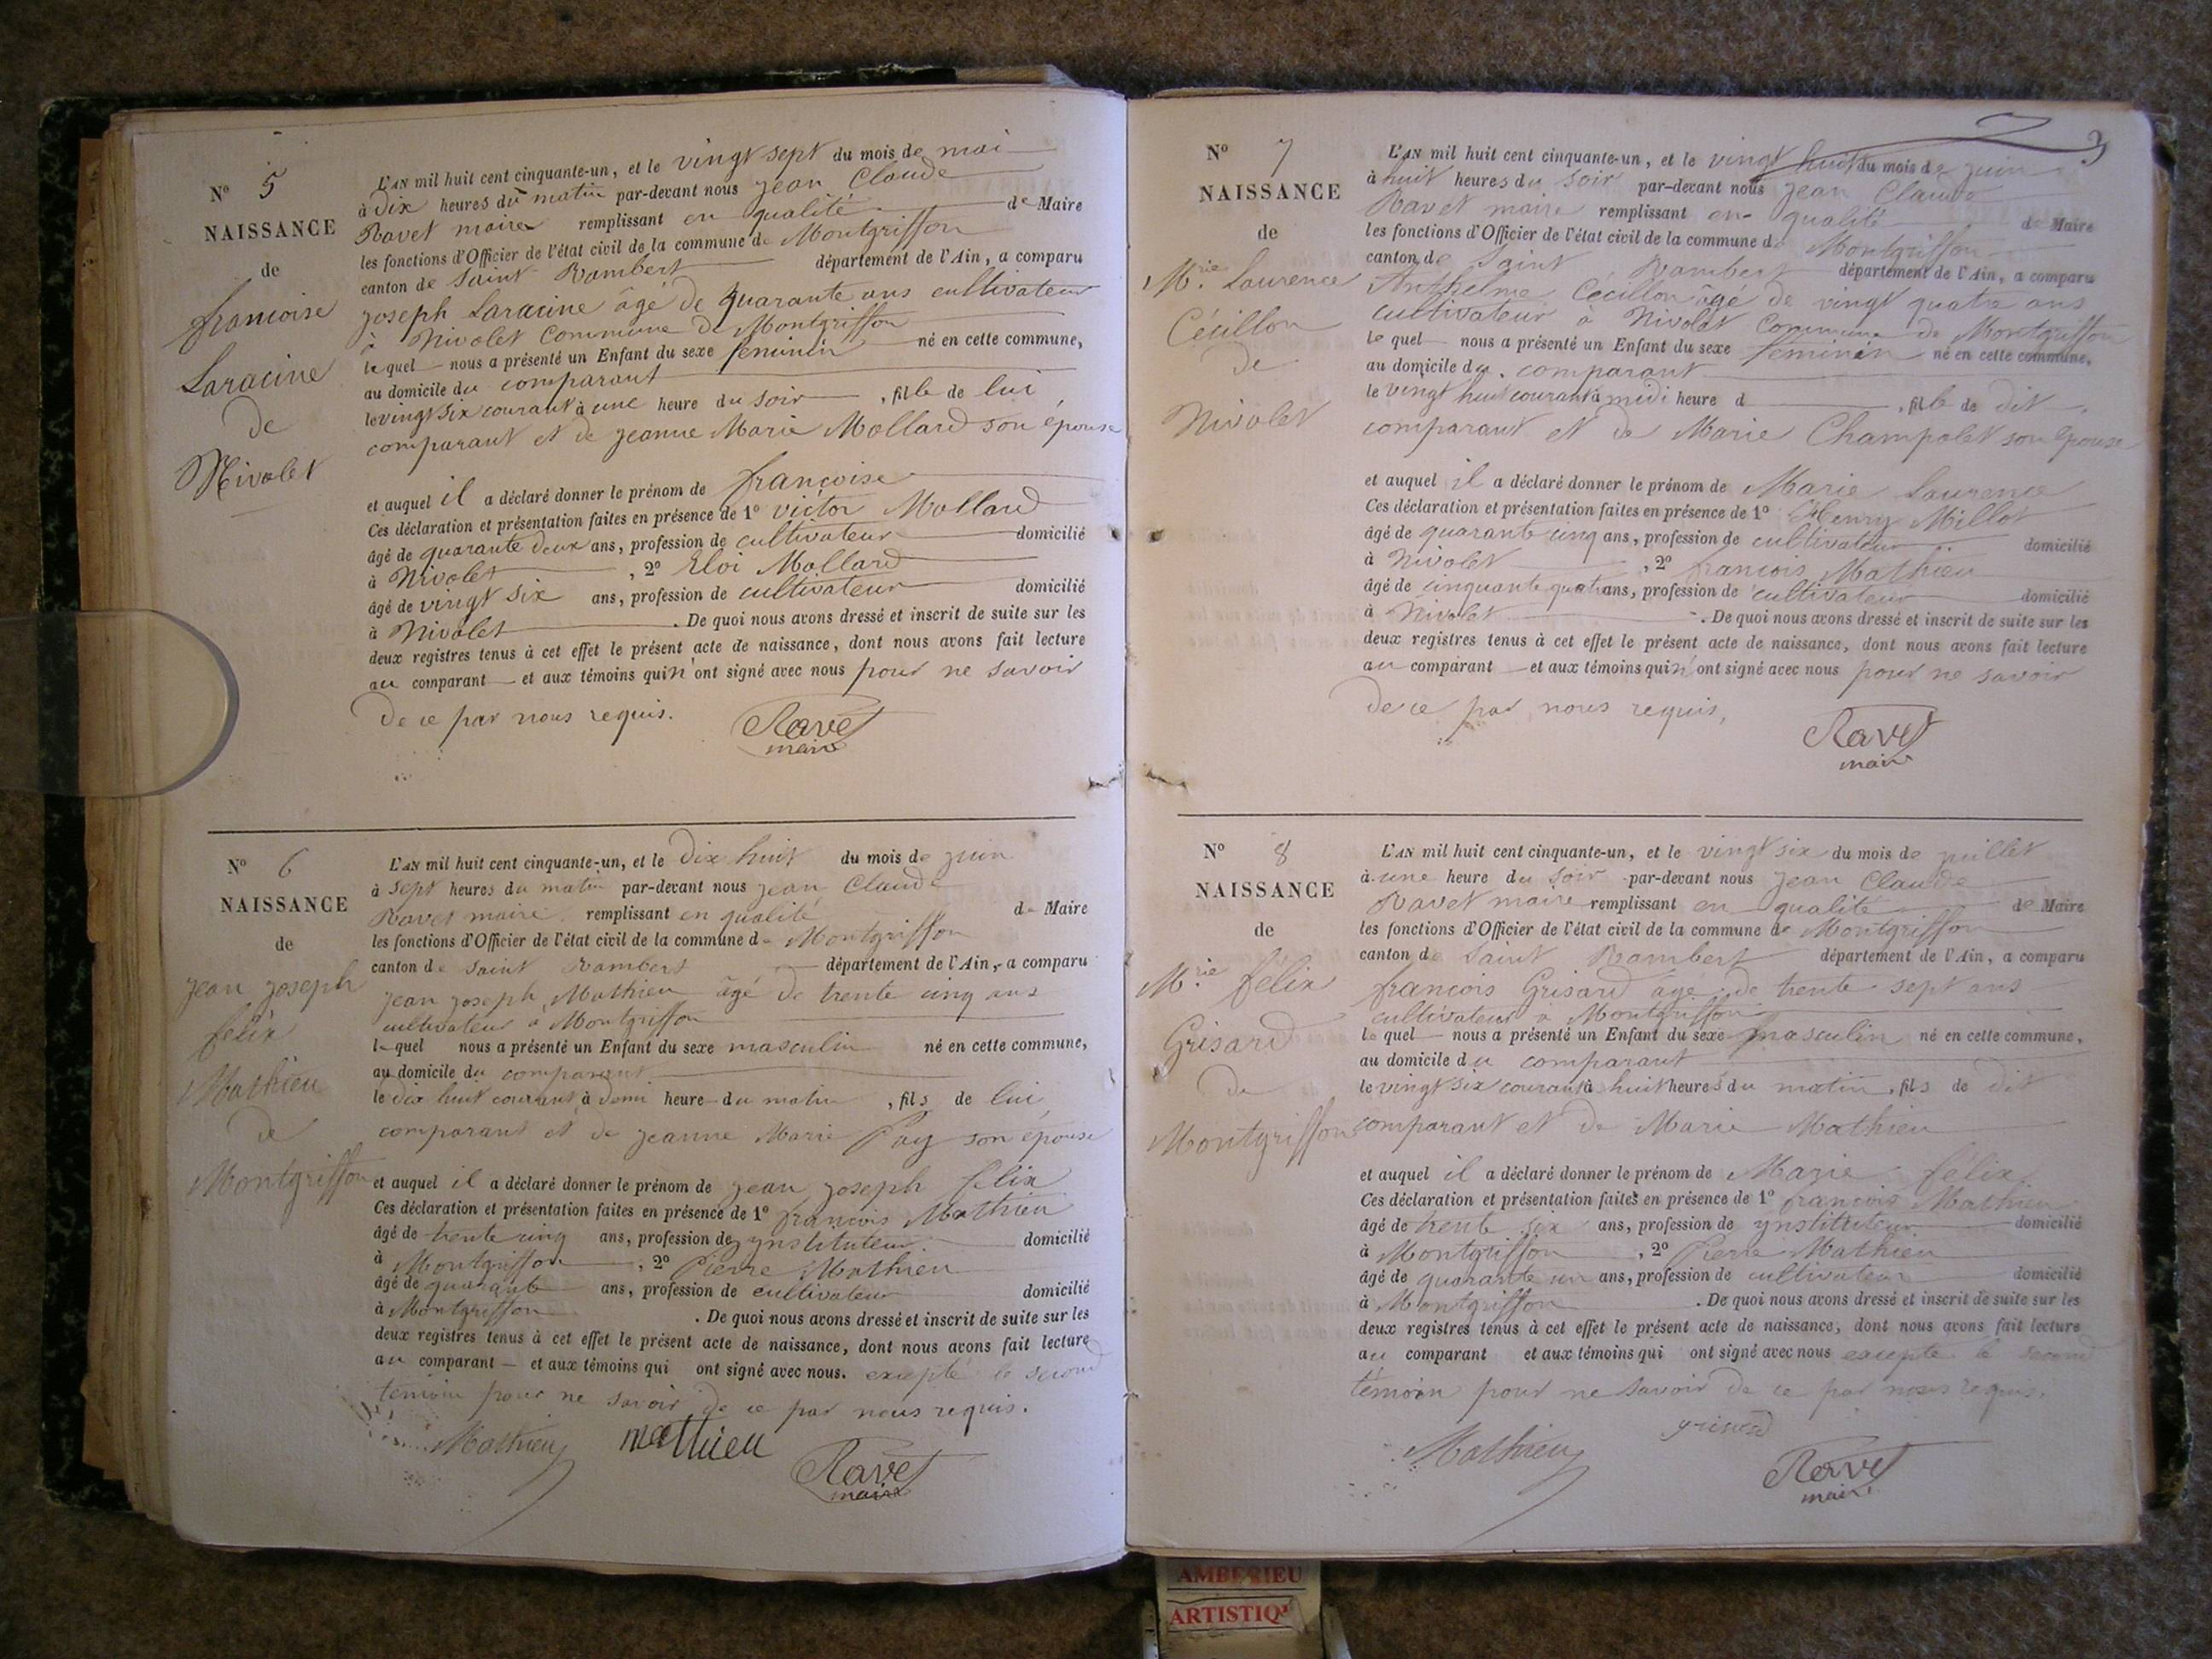 N° 5
NAISSANCE
de
françoise
Laracine
de
Nivolet
L'AN mil huit cent cinquante-un, et le vingt sept du mois de mai
à dix heures du matin par-devant nous jean Claude
Ravet maire remplissant en qualité de Maire
les fonctions d'Officier de l'état civil de la commune de Montgriffon
canton de Saint Rambert département de l'Ain, a comparu
joseph Laracine âgé de quarante ans cultivateur
à Nivolet Commune de Montgriffon
lequel nous a présenté un Enfant du sexe feminin né en cette commune,
au domicile du comparant
le vingt six courant à une heure du soir, fille de lui
comparant et de jeanne Marie Mollard son épouse
et auquel il a déclaré donner le prénom de françoise
Ces déclaration et présentation faites en présence de 1° victor Mollard
âgé de quarante deux ans, profession de cultivateur domicilié
à Nivolet, 2° Eloi Mollard
âgé de vingt six ans, profession de cultivateur domicilié
à Nivolet. De quoi nous avons dressé et inscrit de suite sur les
deux registres tenus à cet effet le présent acte de naissance, dont nous avons fait lecture
au comparant et aux témoins qui n'ont signé avec nous pour ne savoir
de ce par nous requis.
Ravet
maire
N° 6
NAISSANCE
de
jean joseph
felix
Mathieu
de
Montgriffon
L'AN mil huit cent cinquante-un, et le dix huit du mois de juin
à sept heures du matin par-devant nous jean Claude
Ravet maire remplissant en qualité de Maire
les fonctions d'Officier de l'état civil de la commune de Montgriffon
canton de saint Rambert département de l'Ain, a comparu
jean joseph Mathieu âgé de trente cinq ans
cultivateur à Montgriffon
lequel nous a présenté un Enfant du sexe masculin né en cette commune,
au domicile du comparant
le dix huit courant à demi heure du matin, fils de lui
comparant et de jeanne Marie Pay son épouse
et auquel il a déclaré donner le prénom de jean joseph felix
Ces déclaration et présentation faites en présence de 1° françois Mathieu
âgé de trente cinq ans, profession de ynstituteur domicilié
à Montgriffon, 2° Pierre Mathieu
âgé de quarante ans, profession de cultivateur domicilié
à Montgriffon. De quoi nous avons dressé et inscrit de suite sur les
deux registres tenus à cet effet le présent acte de naissance, dont nous avons fait lecture
au comparant et aux témoins qui ont signé avec nous. excepté le second
témoin pour ne savoir de ce par nous requis.
Mathieu mathieu Ravet
maire
3
N° 7
NAISSANCE
de
M.rie Laurence
Cécillon
de
Nivolet
L'AN mil huit cent cinquante-un, et le vingt huit du mois de juin
à huit heures du soir par-devant nous jean Claude
Ravet maire remplissant en qualité de Maire
les fonctions d'Officier de l'état civil de la commune de Montgriffon
canton de Saint Rambert département de l'Ain, a comparu
Anthelme Cécillon âgé de vingt quatre ans
cultivateur à Nivolet Commune de Montgriffon
lequel nous a présenté un Enfant du sexe féminin né en cette commune,
au domicile du comparant
le vingt huit courant à midi heure d, fille de dit
comparant et de Marie Champolet son épouse
et auquel il a déclaré donner le prénom de Marie Laurence
Ces déclaration et présentation faites en présence de 1° Henry Millot
âgé de quarante cinq ans, profession de cultivateur domicilié
à Nivolet, 2° françois Mathieu
âgé de cinquante quatre ans, profession de cultivateur domicilié
à Nivolet. De quoi nous avons dressé et inscrit de suite sur les
deux registres tenus à cet effet le présent acte de naissance, dont nous avons fait lecture
au comparant et aux témoins qui n'ont signé avec nous pour ne savoir
de ce par nous requis,
Ravet
maire
N° 8
NAISSANCE
de
M.rie félix
Grisard
de
Montgriffon
L'AN mil huit cent cinquante-un, et le vingt six du mois de juillet
à une heure du soir par-devant nous jean Claude
Ravet maire remplissant en qualité de Maire
les fonctions d'Officier de l'état civil de la commune de Montgriffon
canton de Saint Rambert département de l'Ain, a comparu
françois Grisard âgé de trente sept ans
cultivateur à Montgriffon
lequel nous a présenté un Enfant du sexe masculin né en cette commune,
au domicile du comparant
le vingt six courant à huit heures du matin, fils de dit
comparant et de Marie Mathieu
et auquel il a déclaré donner le prénom de Marie félix
Ces déclaration et présentation faites en présence de 1° françois Mathieu
âgé de trente six ans, profession de ynstituteur domicilié
à Montgriffon, 2° Pierre Mathieu
âgé de quarante un ans, profession de cultivateur domicilié
à Montgriffon. De quoi nous avons dressé et inscrit de suite sur les
deux registres tenus à cet effet le présent acte de naissance, dont nous avons fait lecture
au comparant et aux témoins qui ont signé avec nous excepté le second
témoin pour ne savoir de ce par nous requis.
Mathieu grisard Ravet
maire
AMBERIEU
ARTISTIQ